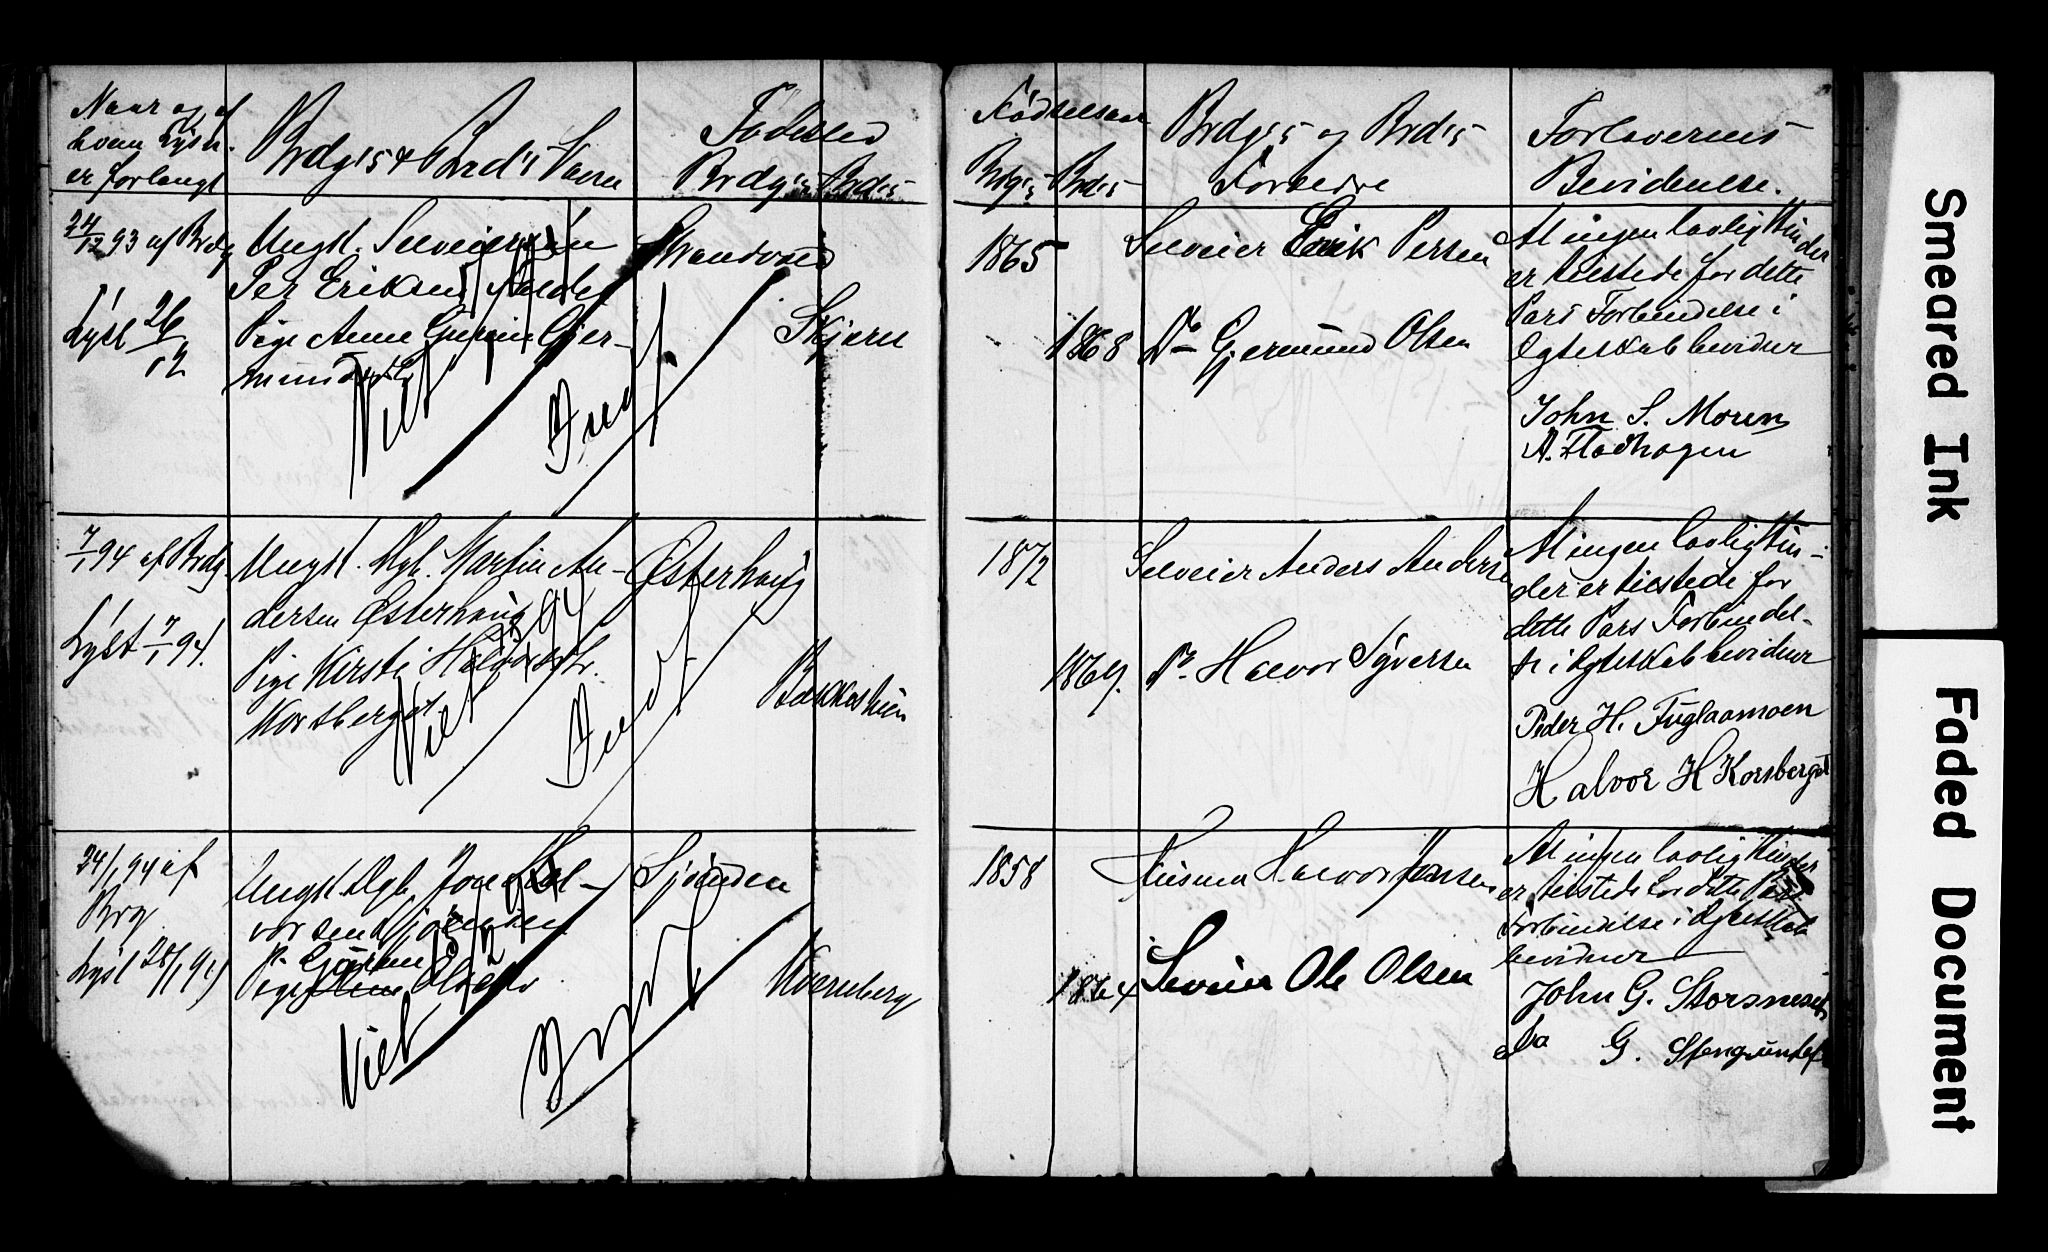 Naar og af
hvem Lysn.
er forlangt
Brdg's & Brd's Navn
Fødested
Brdg's Brd's
Fødselsaar
Brdg's Brd's
Brdg's og Brd's
Forældre
Forlovernes
Bevidnelse.
24/12 93 af Brdg
Lyst 26/12
Ungk. Selveiersøn
Per Eriksen
Pige Anne Gurine Gjer-
mundsdtr
Viet
Indf
Strandvold
Skjern
1865
1868
Selveier Erik Persen
Do Gjermund Olsen
At ingen lovlig Hinder
er tilstede for dette
Pars Forbindelse i
Egteskab bevidner
John S. Moren
A. Flodhagen
7/1 94 af Brdg
Lyst 7/1 94.
Ungk. Dgb. Martin An-
dersen Østerhaug
Pige Kirsti Halvorsdtr.
Korsberget
Viet 94
Indf
Østerhaug
Bakkeshien
1872
1869.
Selveier Anders Anderse
Do Halvor Syversen
At ingen lovlig Hin-
der er tilstede for
dette Pars Forbindel-
se i Egteskab bevidner
Peder H. Fuglaamoen
Halvor H Korsberget
24/1 94 af
Brg
Lyst 28/1 94
Ungk. Dgb. Jon Hal-
vorsen
P. Gjøran
Pige Olsdtr
Viet 15/2 94
Indf
Sjøenden
Kvernberg
1858
1864
Husmn Halvor Jensen
Selveier Ole Olsen
At ingen lovlig Hinder
er tilstede for dette Pars
Forbindelse i Egteskab
bevidner
John G. Storsneset
G. Stengrundet
Smeared Ink
Faded Document